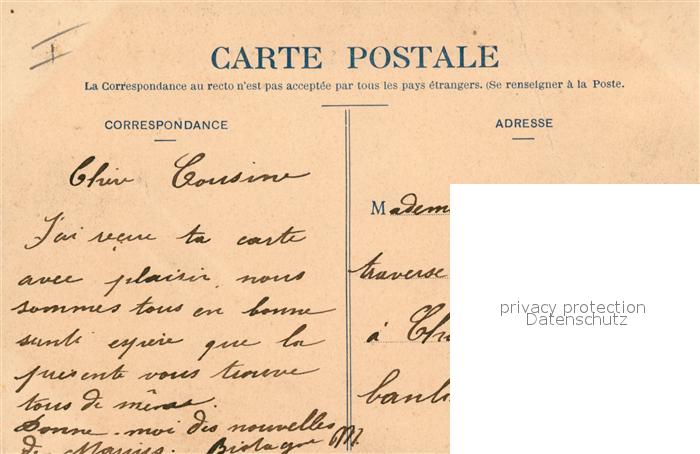 CARTE POSTALE
La Correspondance au recto n'est pas acceptée par tous les pays étrangers. (Se renseigner à la Poste.
CORRESPONDANCE
Chère Cousine
J'ai reçue ta carte
avec plaisir, nous
sommes tous en bonne
santé espère que la
présente vous trouve
tous de même.
Donne-moi des nouvelles
de
ADRESSE
Madem
traverse
à Ch
banl
privacy protection
Datenschutz